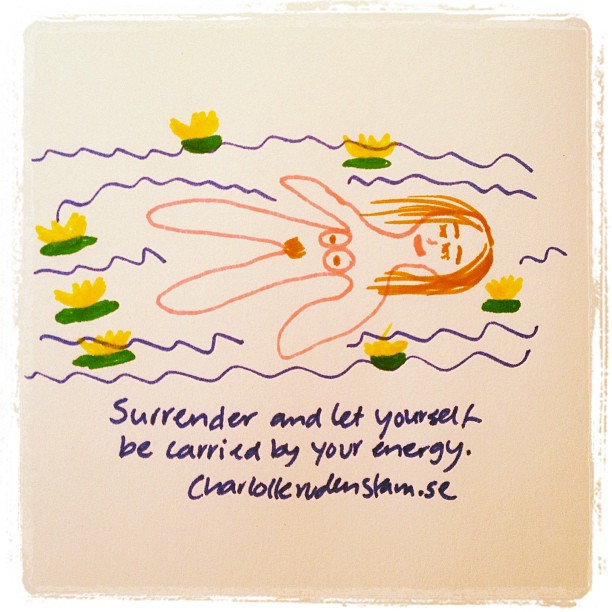 Surrender and let yourself
be carried by your energy.
Charlotterudenstam.se